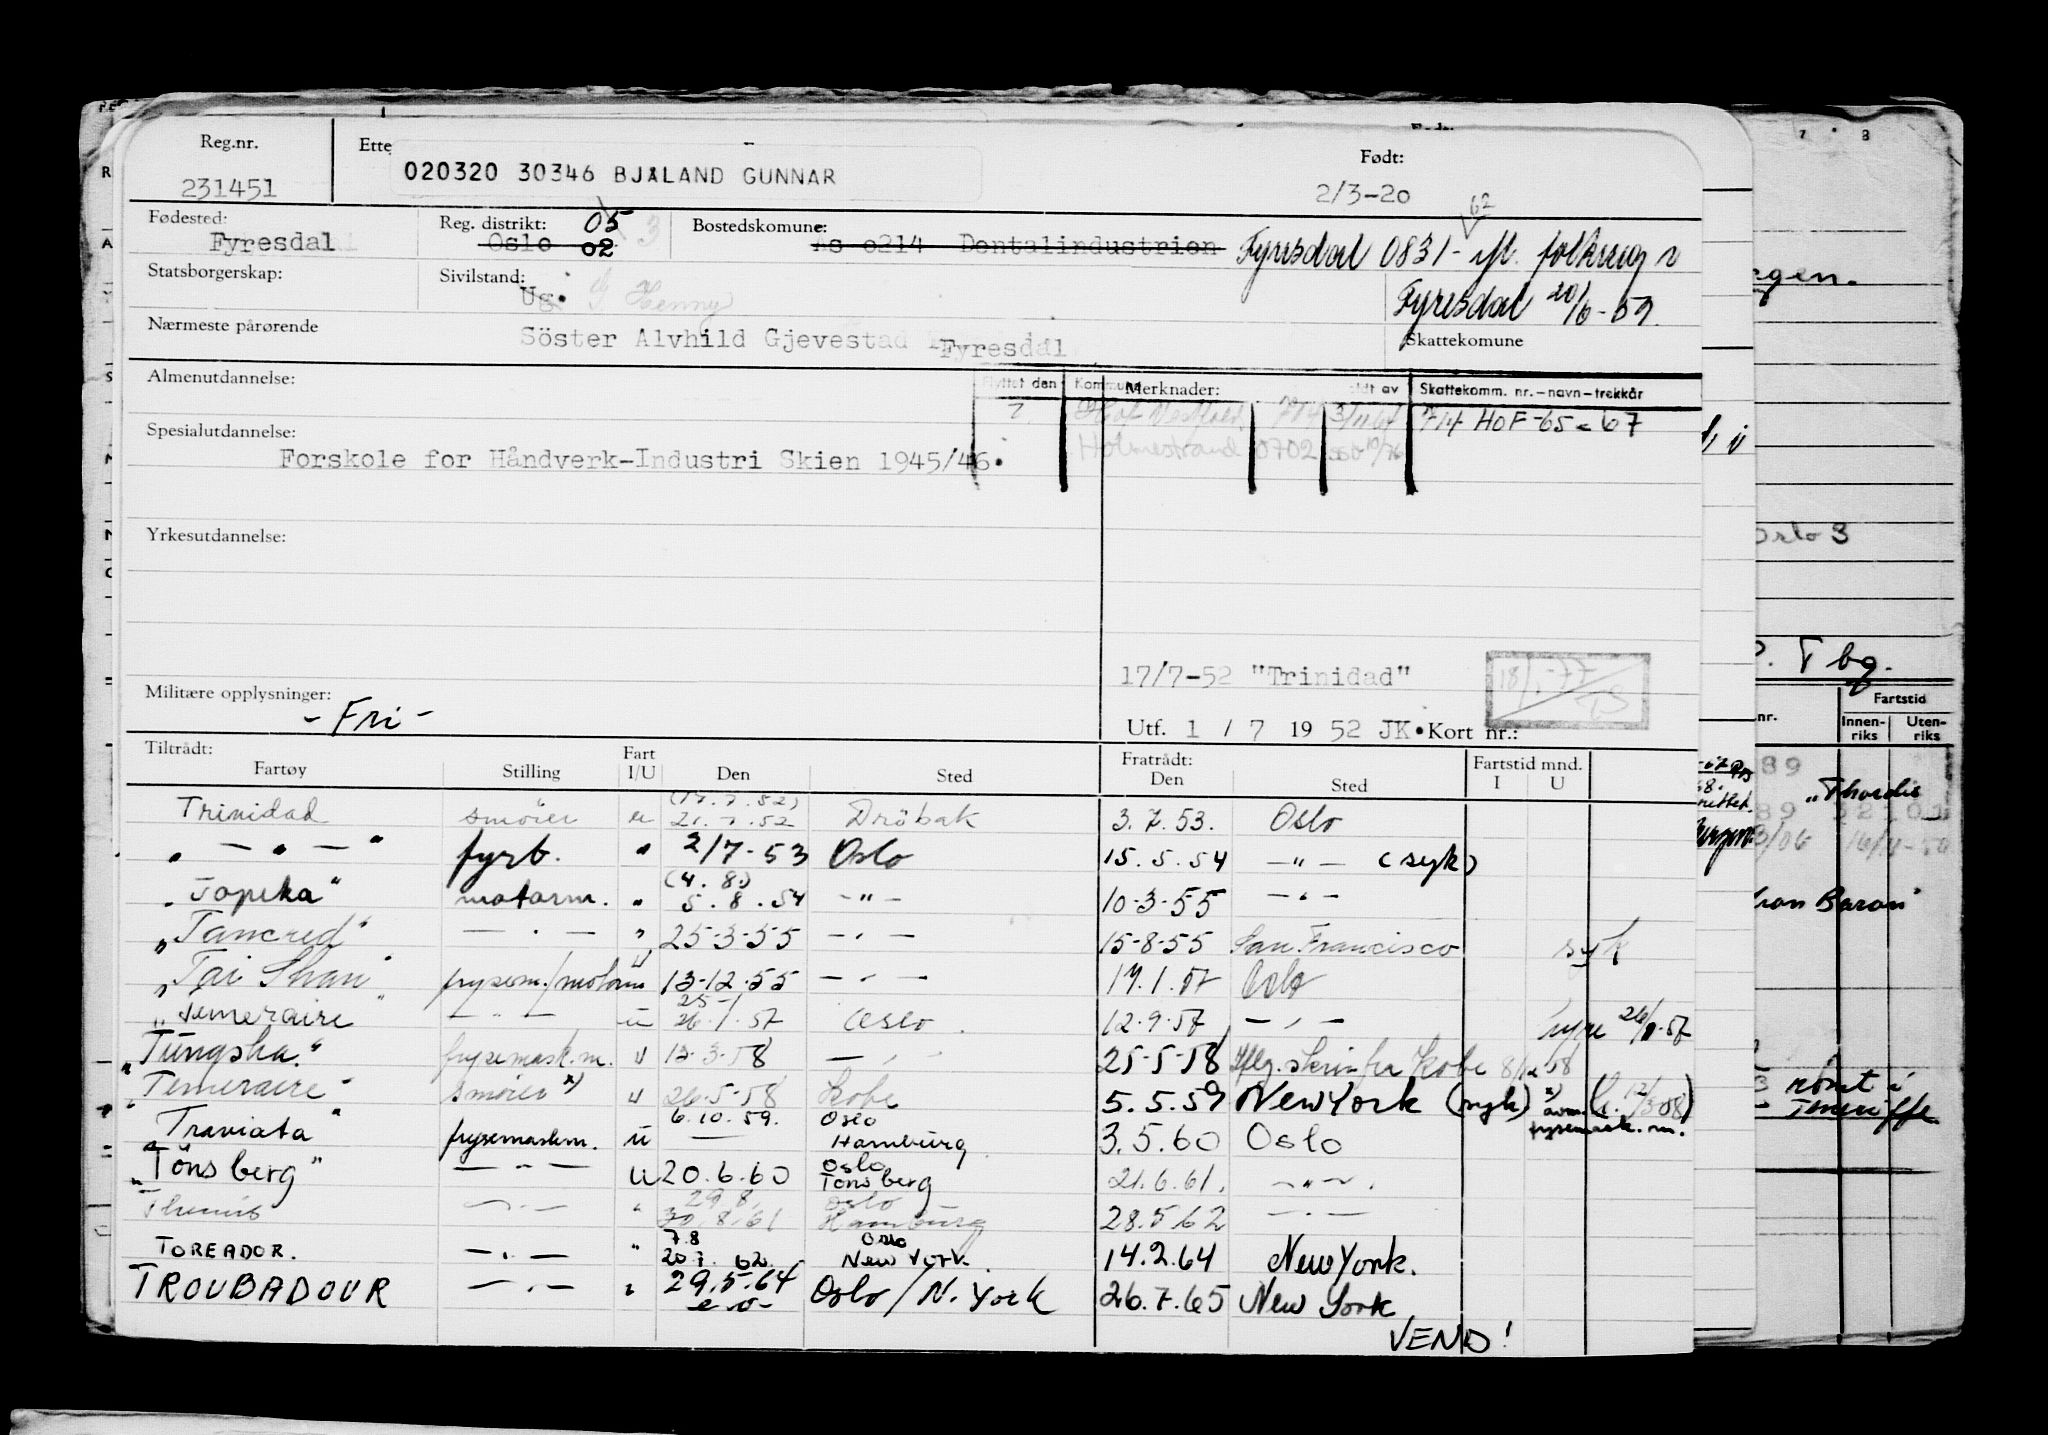 Reg.nr. Ette Født:
231451 020320 30346 BJÅLAND GUNNAR 2/3-20
Fødested: Reg. distrikt: 05 3 Bostedskommune: 62
Fyresdal Oslo 02 As 0214 Dentalindustrien Fyresdal 0831 - ifl. folkereg i
Statsborgerskap: Sivilstand: Fyresdal 20/6-59.
Ug. G Henny
Nærmeste pårørende Söster Alvhild Gjevestad Fyresdal Skattekomune
Almenutdannelse: Flyttet den Kommune Merknader: ldt av Skattekomm. nr.-navn-trekkår
? Hof Vestfold, 714 3/11 64 714 HOF -65 - 67
Spesialutdannelse: Holmestrand 0702 10/76
Forskole for Håndverk-Industri Skien 1945/46.
Yrkesutdannelse:
17/7-52 "Trinidad" 18/1-77 TS
Militære opplysninger: - Fri -
Utf. 1 / 7 19 52 JK. Kort nr.:
Tiltrådt: Fratrådt:
Fartøy Stilling Fart I/U Den Sted Den Sted Fartstid mnd. I U
Trinidad smöier u (17.7.52) 21.7.52 Dröbak 3.7.53. Oslo
" — " — " fyrb. " 2/7-53 Oslo 15.5.54 — " — (syk)
"Topeka" motorm. " (4.8.) 5.8.54 — " — 10-3-55 — " —
"Tancred" — " — " 25-3-55 — " — 15-8-55 San Francisco syk
"Tai Shan" frysem./motorm u 13-12-55 — " — 17.1.57 Oslo
"Temeraire" — " — u 25-1 26.1.57 Oslo. 12.9.57 — " — 26/9-57
"Tungsha." frysemask.m. u 12-3-58 — " — 25-5-58 Kobe 58
"Temeraire" smöier x) u 26-5-58 Kobe 5.5.59 New York (syk) x)
"Traviata" frysemaskm. u 6.10.59. — Oslo Hamburg 3.5.60 Oslo frysemask.m.
"Tönsberg" — " — u 20.6.60 Oslo Tönsberg 21.6.61. — " —.
Themis — " — " 29.8. 30.8.61 Oslo Hamburg 28.5 62 — " —
TOREADOR. — " — " 7.8 20.7. 62. Oslo New York. 14.2.64 New York.
TROUBADOUR — " — " 29.5.64 Oslo / N. York 26.7.65 New York
VEND!
7 8
gen.
Oslo 3
P. Tbg.
Fartstid
nr. Innenriks Utenriks
89 "Thordis
89
Bergen.
Baron"
römt i
Teneriffe